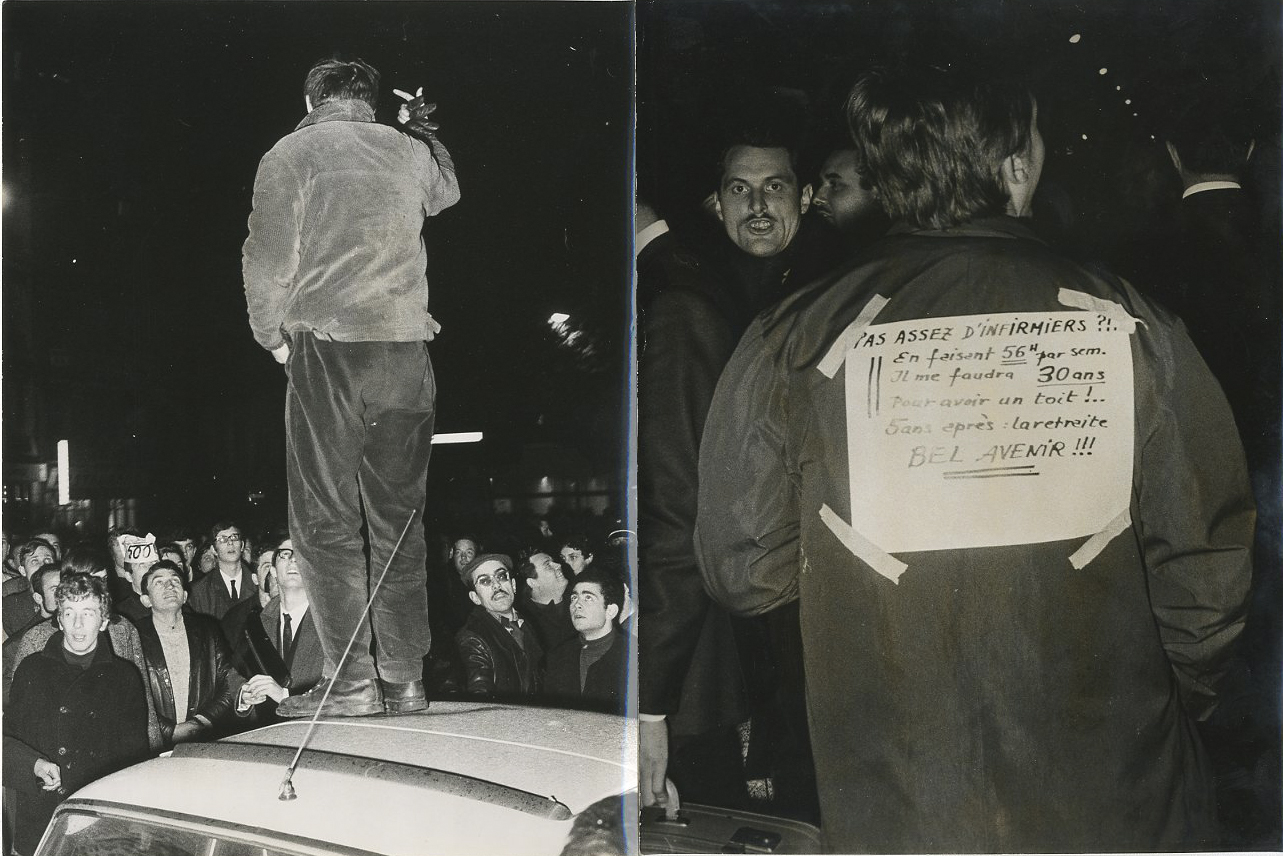 500
PAS ASSEZ D'INFIRMIERS ?!.
En faisant 56H par sem.
Il me faudra 30 ans
Pour avoir un toit !..
5ans après : la retraite
BEL AVENIR !!!